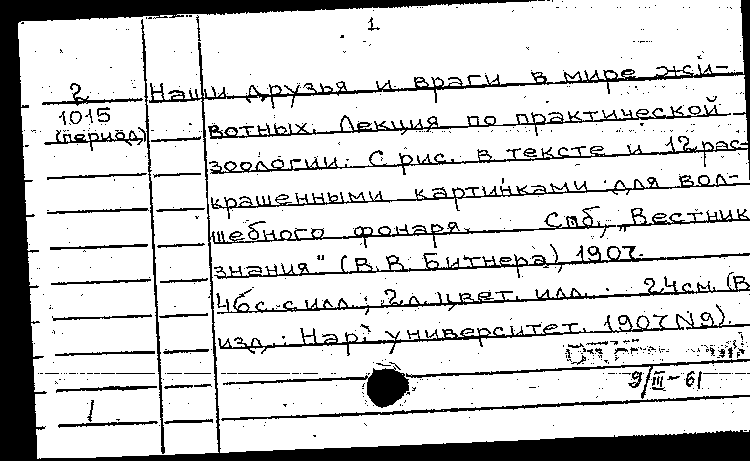 1
2 Наши друзья и враги в мире жи-
1015 вотных. Лекция по практической
(период) зоологии. С рис. в тексте и 12 рас-
крашенными картинками для вол-
шебного фонаря. Спб, „Вестник
знания" (В.В. Битнера) 1907.
46 с. с илл.; 2 л. цвет. илл. . 24 см. (В
изд.: Нар. университет. 1907 N9).
9/III-61
1